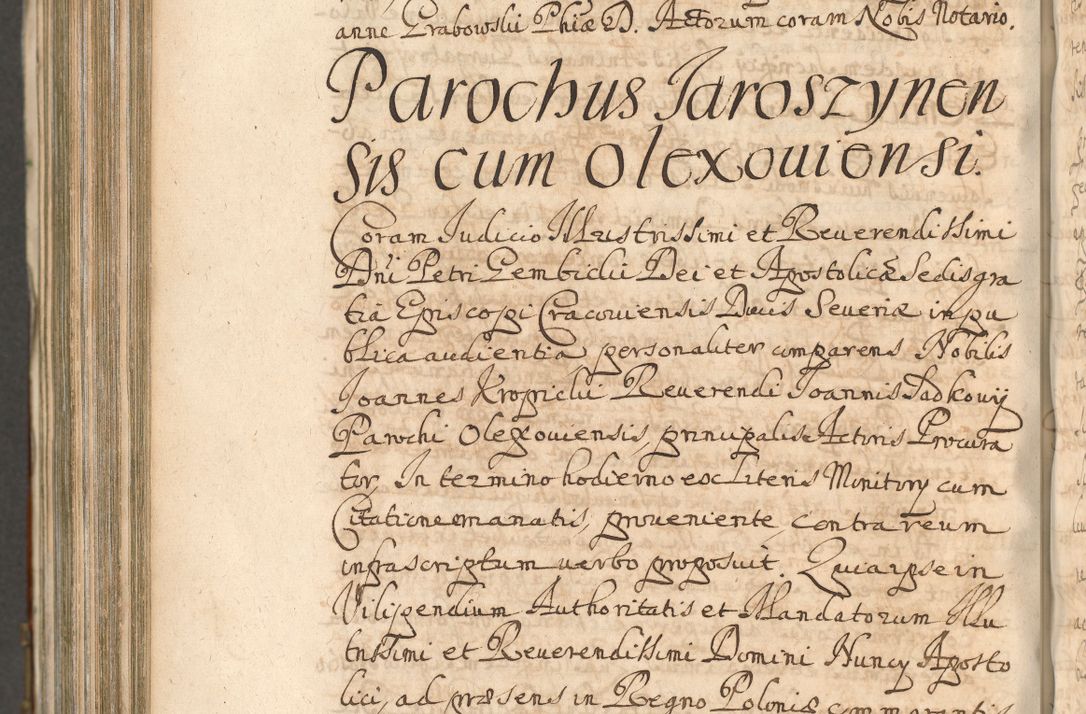 anne Grabowski Phiæ D. Actorum coram Nobis Notario.
Parochus Jaroszynen
sis cum Olexouiensi.
Coram Judicio Illustrissimi et Reuerendissimi
Dni Petri Gembicki Dei et Apostolicæ Sedis gra
tia Episcopi Cracouiensis Ducis Seueriæ in pu
blica audientia personaliter comparens Nobilis
Joannes Kropicki Reuerendi Joannis Sadkouij
Parochi Olexouiensis, principalis Actoris Procura
tor, In termino hodierno ex Literis Monitory cum
Citatione emanatis, proueniente, contra reum
infrascriptum uerbo proposuit. Quia ipse in
Vilipendium Authoritatis et Mandatorum Illu
trissimi et Reuerendissimi Domini Nuncy Aposto
lici, ad præsens in Regno Poloniæ commorantis